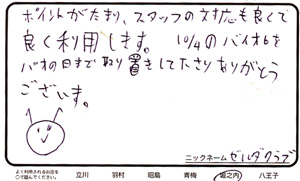 ポイントがたまり、スタッフの対応も良くて
良く利用します。 10/4のバイオ6を
バオの日まで取り置きして下さりありがとう
ございます。
ニックネーム ゼルダクラブ
よく利用されるお店を
○で囲んでください。 立川 羽村 昭島 青梅 堀之内 八王子